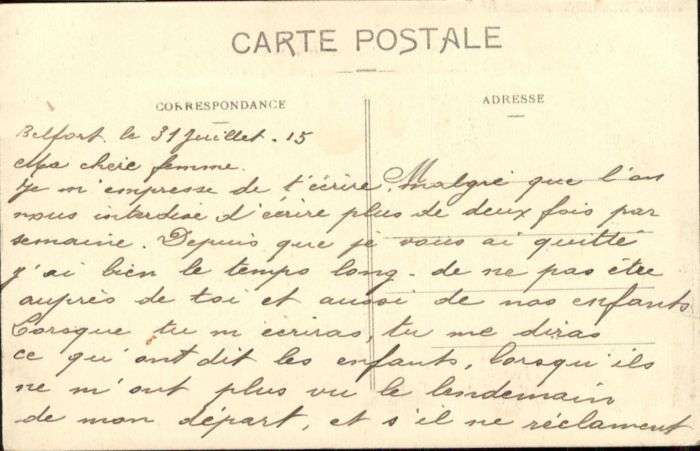 CARTE POSTALE
CORRESPONDANCE
ADRESSE
Belfort. le 31 Juillet. 15
Ma chère femme.
Je m'empresse de t'écrire. Malgré que l'on
nous interdise d'écrire plus de deux fois par
semaine. Depuis que je vous ai quitté
j'ai bien le temps long - de ne pas être
auprès de toi et aussi de nos enfants
Lorsque tu m'écriras, tu me diras
ce qu'ont dit les enfants, lorsqu'ils
ne m'ont plus vu le lendemain
de mon départ, et s'il ne réclament